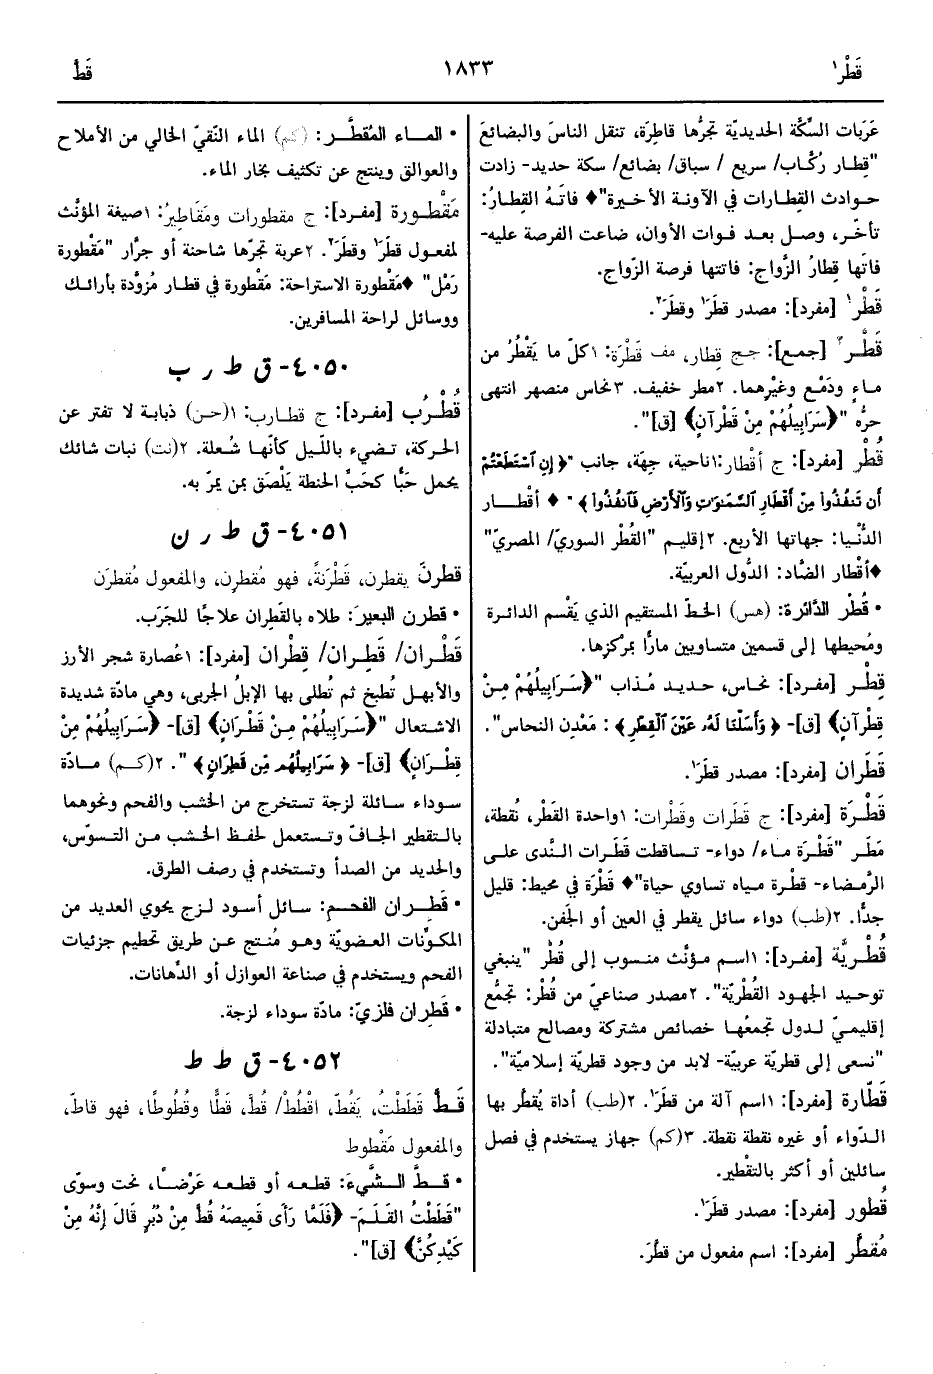 قَطْر١
١٨٣٣
قَطّ
عَرَبات السِّكَّة الحديديّة تجرُّها قاطِرَة، تنقل الناسَ والبضائعَ
"قِطار رُكَّاب/ سريع / سباق/ بضائع/ سكة حديد- زادت
حوادث القِطارات في الآونة الأخيرة"♦ فاتَهُ القِطارُ:
تأخّر، وصل بعد فوات الأوان، ضاعت الفرصة عليه-
فاتَها قِطارُ الزَّواج: فاتتها فرصة الزّواج.
قَطْر١ [مفرد]: مصدر قطَرَ١ وقطَرَ٢.
قَطْر٢ [جمع]: جج قِطار، مف قَطْرَة: ١كلّ ما يَقْطُر من
ماءٍ ودَمْع وغيْرِهما. ٢مطر خفيف. ٣نحاس منصهر انتهى
حرُّه "﴿سَرَابِيلُهُمْ مِنْ قَطْرآنٍ﴾ [ق]".
قُطْر [مفرد]: ج أقْطار:١ناحية، جِهَة، جانب "﴿إِنِ ٱسْتَطَعْتُمْ
أَن تَنفُذُوا۟ مِنْ أَقْطَارِ ٱلسَّمَٰوَٰتِ وَٱلْأَرْضِ فَٱنفُذُوا۟﴾" ♦ أقْطار
الدُّنْيا: جهاتها الأربع. ٢إقليم "القُطْر السوريّ/ المصريّ"
♦أقْطار الضَّاد: الدُّول العربيّة.
• قُطْر الدَّائرة: (هس) الخطّ المستقيم الذي يَقْسم الدائرة
ومُحيطها إلى قسمين متساويين مارًّا بمرْكزِها.
قِطْر [مفرد]: نحاس، حديد مُذاب "﴿سَرَابِيلُهُمْ مِنْ
قِطْرآنٍ﴾ [ق]- ﴿وَأَسَلْنَا لَهُۥ عَيْنَ ٱلْقِطْرِ﴾: مَعْدِن النحاس".
قَطَران [مفرد]: مصدر قطَرَ١.
قَطْرَة [مفرد]: ج قَطَرات وقَطْرات: ١واحدة القَطْر، نُقطة،
مَطَر "قَطْرَة ماء/ دواء- تساقطت قَطَرات النَّدى على
الرَّمضاء- قطْرة مياه تساوي حياة"♦ قَطْرَة في محيط: قليل
جدًّا. ٢(طب) دواء سائل يقطر في العين أو الجَفن.
قُطْريَّة [مفرد]: ١اسم مؤنَّث منسوب إلى قُطْر "ينبغي
توحيد الجهود القُطْريّة". ٢مصدر صناعيّ من قُطْر: تجمُّع
إقليميّ لدول تجمعُها خصائص مشتركة ومصالح متبادلة
"نسعى إلى قطريّة عربية- لابد من وجود قطريّة إسلاميّة".
قَطَّارة [مفرد]: ١اسم آلة من قطَرَ١. ٢(طب) أداة يُقطَّر بها
الدّواء أو غيره نقطة نقطة. ٣(كم) جهاز يستخدم في فصل
سائلين أو أكثر بالتقْطير.
قُطُور [مفرد]: مصدر قطَرَ١.
مُقطَّر [مفرد]: اسم مفعول من قطَّرَ.
• الماء المُقطَّر: (كم) الماء النّقيّ الخالي من الأملاح
والعوالق وينتج عن تكثيف بخار الماء.
مَقْطورة [مفرد]: ج مقطورات ومَقَاطِيرُ: ١صيغة المؤنَّث
لمفعول قطَرَ١ وقطَرَ٢. ٢عربة تجرّها شاحنة أو جرَّار "مَقْطورة
رَمْل" ♦مَقْطورة الاستراحة: مَقْطورة في قطار مُزوَّدة بأرائك
ووسائل لراحة المسافرين.
٤٠٥٠- ق ط ر ب
قُطْرُب [مفرد]: ج قطارب: ١(حن) ذبابة لا تفتر عن
الحركة، تضيء باللّيل كأنّها شُعلة. ٢(نت) نبات شائك
يحمل حَبًّا كحَبِّ الحنطة يَلْصَق بمن يمرّ به.
٤٠٥١- ق ط ر ن
قطرنَ يقطرن، قَطْرَنةً، فهو مُقطرِن، والمفعول مُقطرَن
• قطرن البعيرَ: طلاه بالقَطِران علاجًا للجَرَب.
قَطْران/ قَطِران/ قِطْران [مفرد]: ١عُصارة شجر الأرز
والأبهل تُطبخ ثم تُطلى بها الإبلُ الجربى، وهي مادّة شديدة
الاشتعال "﴿سَرَابِيلُهُمْ مِنْ قَطْرَانٍ﴾ [ق]- ﴿سَرَابِيلُهُمْ مِنْ
قِطْرَانٍ﴾ [ق]- ﴿سَرَابِيلُهُم مِّن قَطِرَانٍ﴾". ٢(كم) مادّة
سوداء سائلة لزجة تستخرج من الخشب والفحم ونحوهما
بالتقطير الجافّ وتستعمل لحفظ الخشب من التسوّس،
والحديد من الصدأ وتستخدم في رصف الطرق.
• قَطِران الفحم: سائل أسود لزج يحوي العديد من
المكوِّنات العضويّة وهو مُنتج عن طريق تحطيم جزئيات
الفحم ويستخدم في صناعة العوازل أو الدِّهانات.
• قَطِران فلزيّ: مادّة سوداء لزجة.
٤٠٥٢- ق ط ط
قَطَّ قَطَطْتُ، يَقُطّ، اقْطُطْ/ قُطَّ، قَطًّا وقُطُوطًا، فهو قاطّ،
والمفعول مَقْطوط
• قطَّ الشَّيءَ: قطعه أو قطعه عَرْضاً، نحت وسوّى
"قَطَطْتُ القَلَمَ- ﴿فَلَمَّا رَأَى قَمِيصَهُ قُطَّ مِنْ دُبُرٍ قَالَ إِنَّهُ مِنْ
كَيْدِكُنَّ﴾ [ق]".